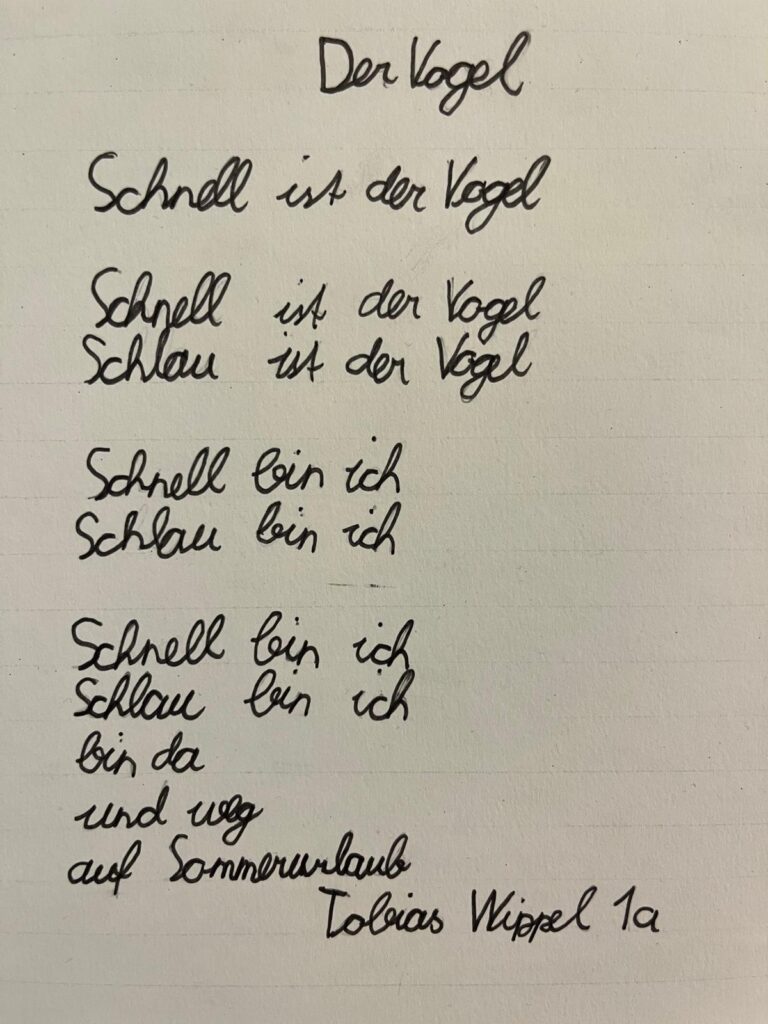 Der Vogel
Schnell ist der Vogel
Schnell ist der Vogel
Schlau ist der Vogel
Schnell bin ich
Schlau bin ich
Schnell bin ich
Schlau bin ich
bin da
und weg
auf Sommerurlaub
Tobias Wippel 1a